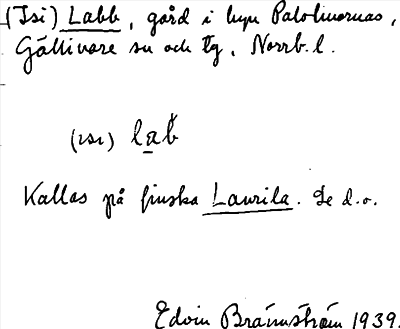 (Isi) Labb, gård i byn Palohuornas,
Gällivare sn och tg, Norrb. l.
(ɪsɪ) lab̆
Kallas på finska Laurila. Se d.o.
Edvin Brännström 1939.